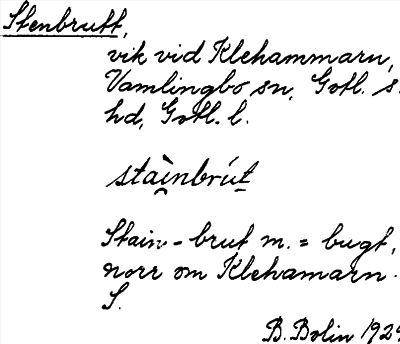 Stenbrutt,
vik vid Klehammarn,
Vamlingbo sn, Gotl. s.
hd, Gotl. l.
stai̯nbrút
Stain-brut m. = bugt,
norr om Klehamarn.
S.
B. Bolin 192